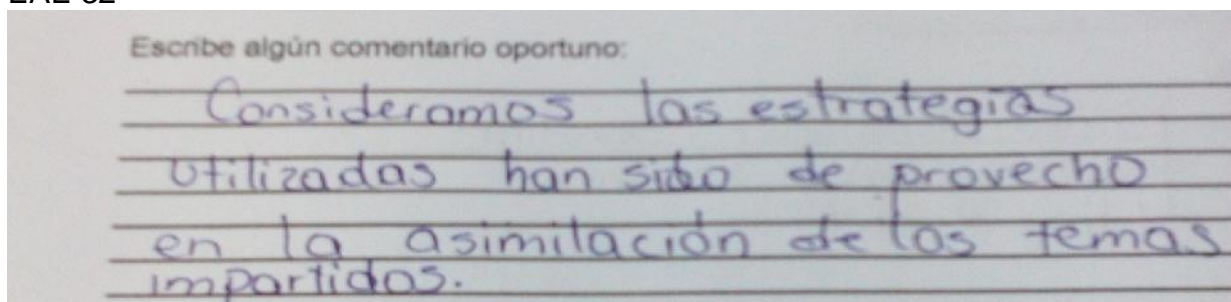 Escribe algún comentario oportuno:
Consideramos las estrategias
utilizadas han sido de provecho
en la asimilación de los temas
impartidos.